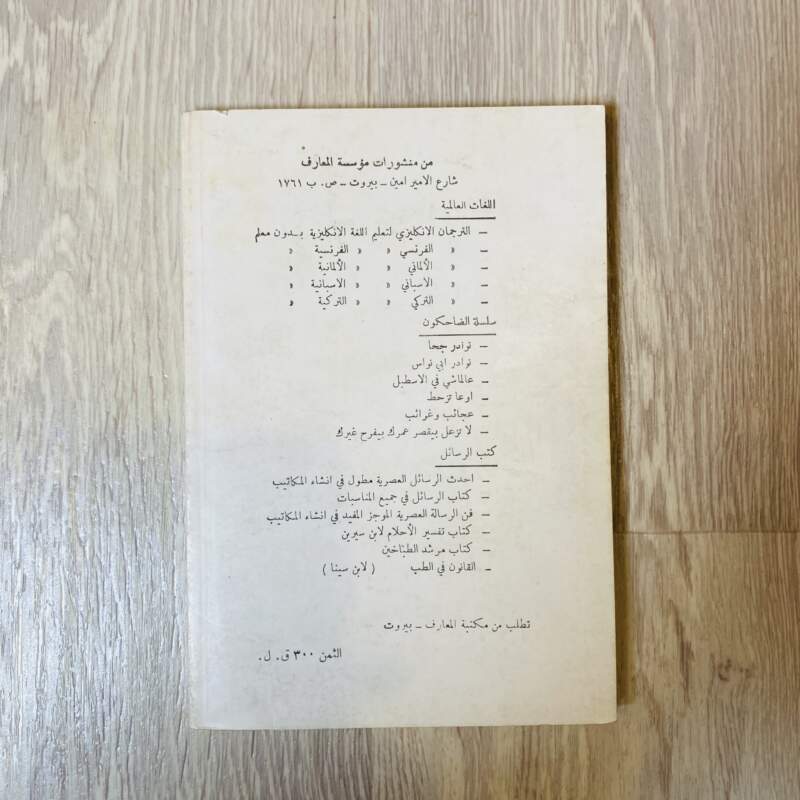 من منشورات مؤسسة المعارف
شارع الامير امين – بيروت – ص. ب ١٧٦١
اللغات العالمية
– الترجمان الانكليزي لتعليم اللغة الانكليزية بدون معلم
– » الفرنسي » » الفرنسية »
– » الألماني » » الألمانية »
– » الاسباني » » الاسبانية »
– » التركي » » التركية »
سلسلة الضاحكون
– نوادر جحا
– نوادر ابي نواس
– عالماشي في الاسطبل
– اوعا تزحط
– عجائب وغرائب
– لا تزعل بيقصر عمرك بيفرح غيرك
كتب الرسائل
– احدث الرسائل العصرية مطول في انشاء المكاتيب
– كتاب الرسائل في جميع المناسبات
– فن الرسالة العصرية الموجز المفيد في انشاء المكاتيب
– كتاب تفسير الأحلام لابن سيرين
– كتاب مرشد الطباخين
– القانون في الطب ( لابن سينا )
تطلب من مكتبة المعارف – بيروت
الثمن ٣٠٠ ق. ل.